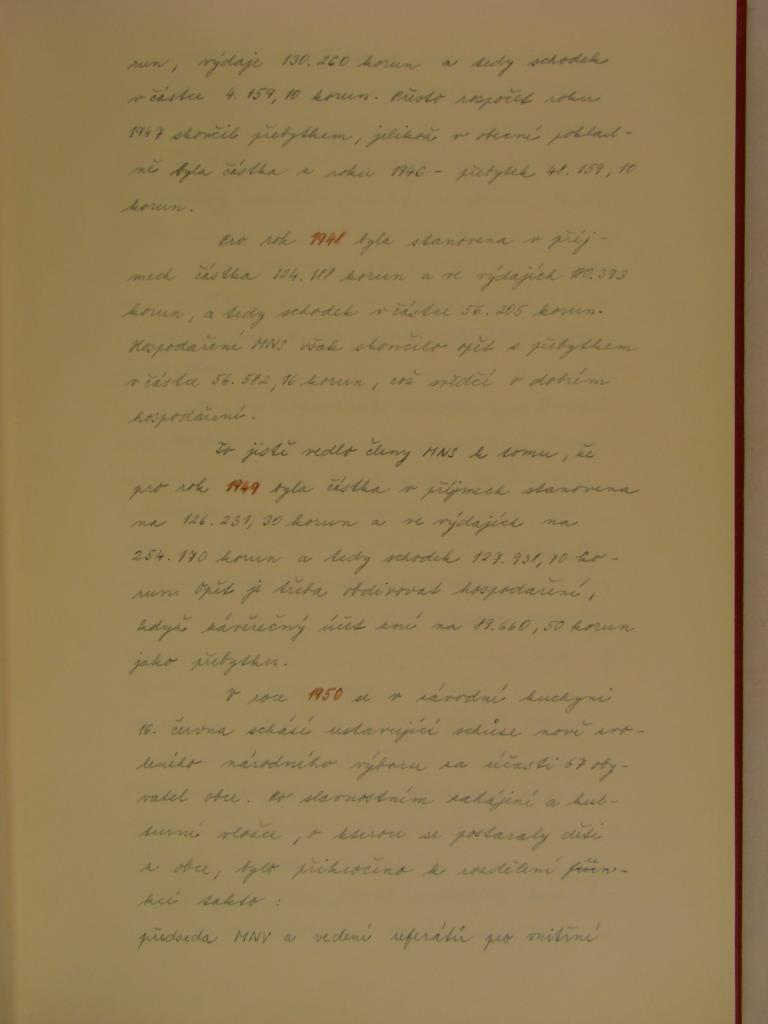 run, výdaje 130.260 korun a tedy schodek
v částce 4.159,10 korun. Přesto rozpočet roku
1947 skončil přebytkem, jelikož v obecní poklad-
ně byla částka z roku 1946 - přebytek 48.159,10
korun.
Pro rok 1948 byla stanovena v příj-
mech částka 124.188 korun a ve výdajích 180.393
korun, a tedy schodek v částce 56.205 korun.
Hospodaření MNS však skončilo opět s přebytkem
v částce 56.582,16 korun, což svědčí o dobrém
hospodaření.
To jistě vedlo členy MNS k tomu, že
pro rok 1949 byla částka v příjmech stanovena
na 126.231,30 korun a ve výdajích na
254.170 korun a tedy schodek 127.938,70 ko-
run. Opět je třeba obdivovat hospodaření,
když závěrečný účet zní na 89.660,50 korun
jako přebytku.
V roce 1950 se v závodní kuchyni
16. června schází ustavující schůze nově zvo-
leného národního výboru za účasti 67 oby-
vatel obce. Po slavnostním zahájení a kul-
turní vložce, o kterou se postaraly děti
z obce, bylo přikročeno k rozdělení funk-
kcí takto:
předseda MNV a vedení referátů pro vnitřní